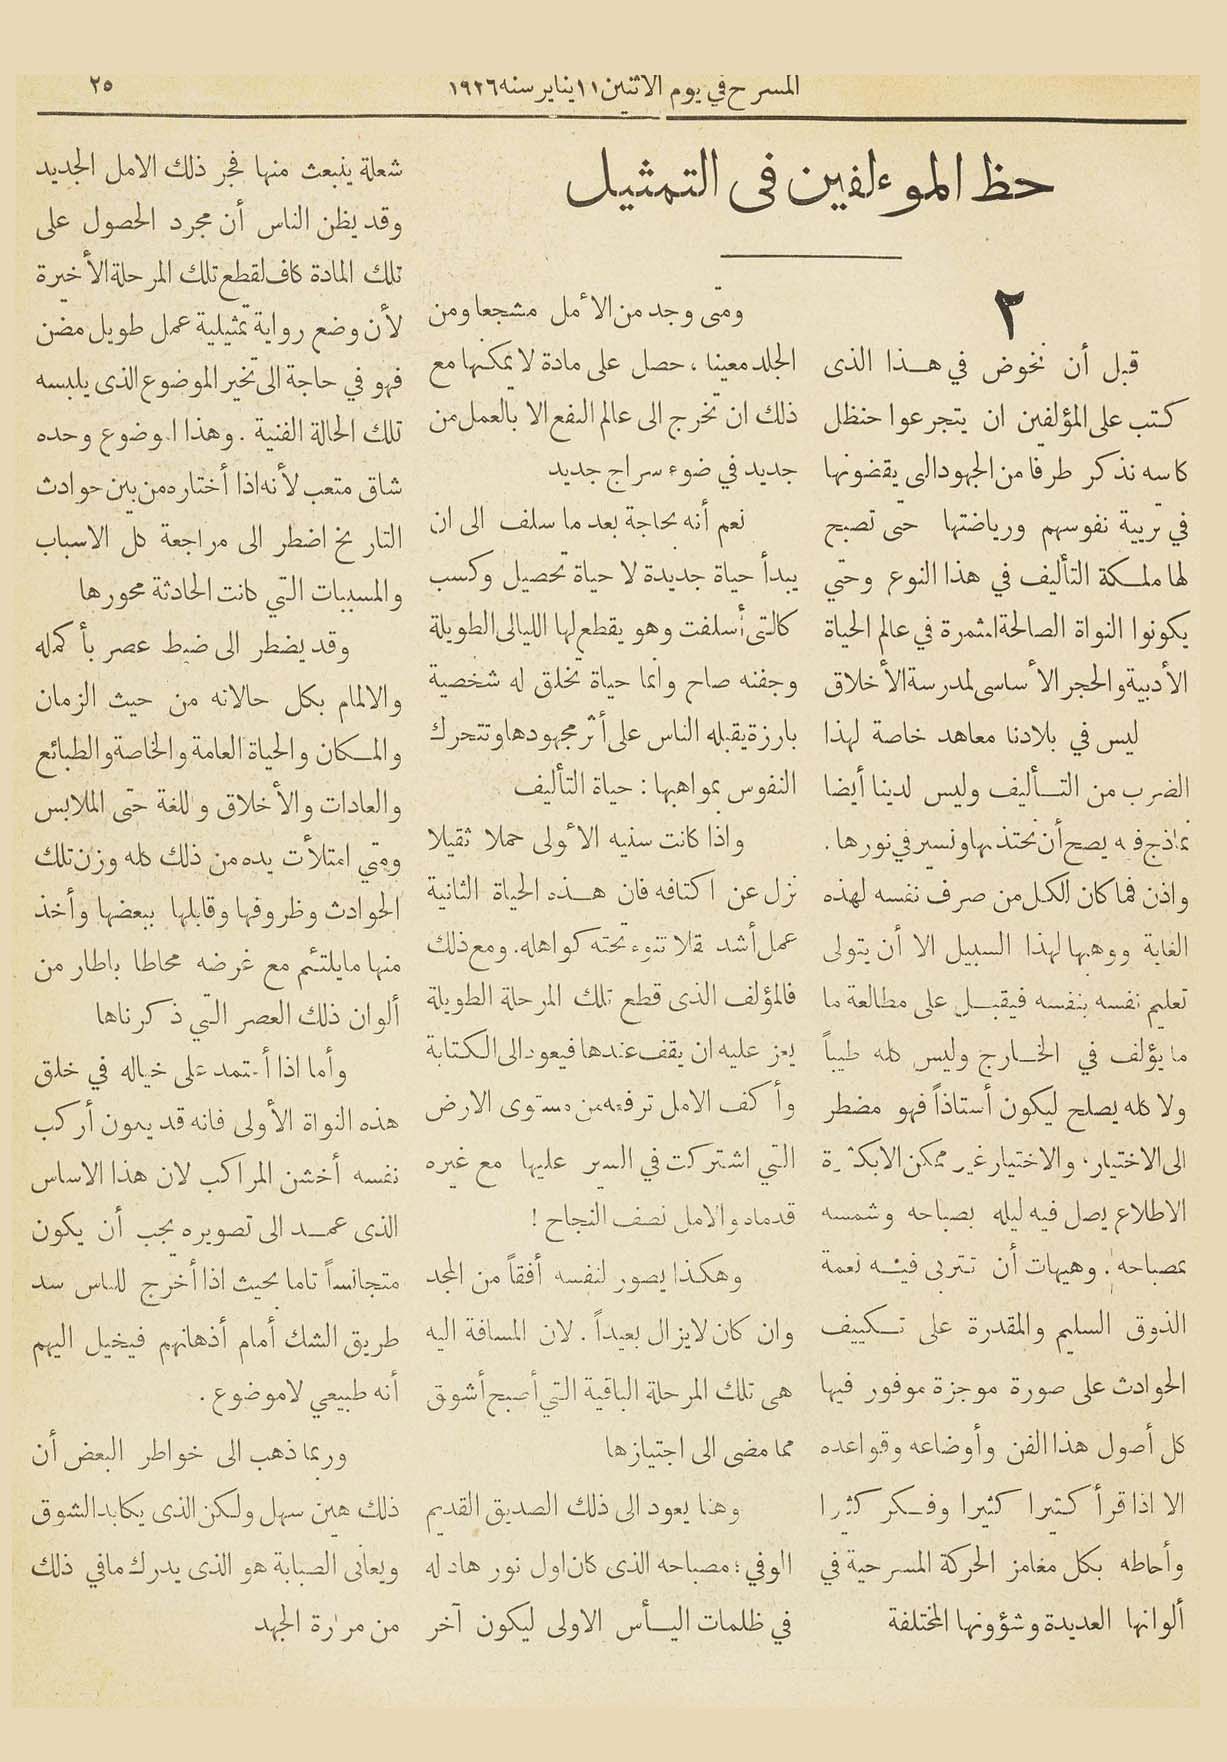 المسرح في يوم الاثنين ١١ يناير سنه ١٩٢٦
٢٥
حظ الموءلفين فى التمثيل
٢
قبل أن نخوض في هذا الذى
كتب على المؤلفين ان يتجرعوا حنظل
كاسه نذكر طرفا من الجهود التى يقضونها
في تربية نفوسهم ورياضتها حتى تصبح
لها ملكة التأليف في هذا النوع وحتي
يكونوا النواة الصالحة المثمرة في عالم الحياة
الأدبية والحجر الأساسى لمدرسة الأخلاق
ليس في بلادنا معاهد خاصة لهذا
الضرب من التأليف وليس لدينا أيضا
نماذج فيه يصح أن نحتذيها ونسير في نورها .
واذن فما كان الكل من صرف نفسه لهذه
الغاية ووهبها لهذا السبيل الا أن يتولى
تعليم نفسه بنفسه فيقبل على مطالعة ما
ما يؤلف في الخارج وليس كله طيباً
ولا كله يصلح ليكون أستاذاً فهو مضطر
الى الاختيار، والاختيار غير ممكن الا بكثرة
الاطلاع يصل فيه ليله بصباحه وشمسه
بمصباحه . وهيهات أن تتربى فيه نعمة
الذوق السليم والمقدرة على تكييف
الحوادث على صورة موجزة موفور فيها
كل أصول هذا الفن وأوضاعه وقواعده
الا اذا قرأ كثيرا كثيرا وفكر كثيرا
وأحاطه بكل مغامز الحركة المسرحية في
ألوانها العديدة وشؤونها المختلفة
ومتى وجد من الأمل مشجعا ومن
الجلد معينا ، حصل على مادة لا يمكنها مع
ذلك ان تخرج الى عالم النفع الا بالعمل من
جديد في ضوء سراج جديد
نعم أنه بحاجة بعد ما سلف الى ان
يبدأ حياة جديدة لا حياة تحصيل وكسب
كالتى أسلفت وهو يقطع لها الليالى الطويلة
وجفنه صاح وانما حياة تخلق له شخصية
بارزة يقبله الناس على أثر مجهودها وتتحرك
النفوس بمواهبها : حياة التأليف
واذا كانت سنيه الأولى حملا ثقيلا
نزل عن اكتافه فان هذه الحياة الثانية
عمل أشد ثقلا تنوء تحته كواهله . ومع ذلك
فالمؤلف الذى قطع تلك المرحلة الطويلة
يعز عليه ان يقف عندها فيعود الى الكتابة
وأكف الامل ترفعه من مستوى الارض
التي اشتركت في السير عليها مع غيره
قدماه والامل نصف النجاح !
وهكذا يصور لنفسه أفقاً من المجد
وان كان لايزال بعيداً . لان المسافة اليه
هى تلك المرحلة الباقية التي أصبح أشوق
مما مضى الى اجتيازها
وهنا يعود الى ذلك الصديق القديم
الوفي ؛ مصباحه الذى كان اول نور هاد له
في ظلمات اليأس الاولى ليكون آخر
شعلة ينبعث منها فجر ذلك الامل الجديد
وقد يظن الناس أن مجرد الحصول على
تلك المادة كاف لقطع تلك المرحلة الأخيرة
لأن وضع رواية تمثيلية عمل طويل مضن
فهو في حاجة الى تخير الموضوع الذى يلبسه
تلك الحالة الفنية . وهذا الموضوع وحده
شاق متعب لأنه اذا أختاره من بين حوادث
التاريخ اضطر الى مراجعة كل الاسباب
والمسببات التي كانت الحادثة محورها
وقد يضطر الى ضبط عصر بأكمله
والالمام بكل حالاته من حيث الزمان
والمكان والحياة العامة والخاصة والطبائع
والعادات والأخلاق واللغة حتى الملابس
ومتي امتلأت يده من ذلك كله وزن تلك
الحوادث وظروفها وقابلها ببعضها وأخذ
منها مايلتئم مع غرضه محاطا باطار من
ألوان ذلك العصر التي ذكرناها
وأما اذا أعتمد على خياله في خلق
هذه النواة الأولى فانه قد يكون أركب
نفسه أخشن المراكب لان هذا الاساس
الذى عمد الى تصويره يجب أن يكون
متجانساً تاما بحيث اذا أخرج للناس سد
طريق الشك أمام أذهانهم فيخيل اليهم
أنه طبيعي لا موضوع .
وربما ذهب الى خواطر البعض أن
ذلك هين سهل ولكن الذى يكابد الشوق
ويعانى الصبابة هو الذى يدرك مافي ذلك
من مرارة الجهد